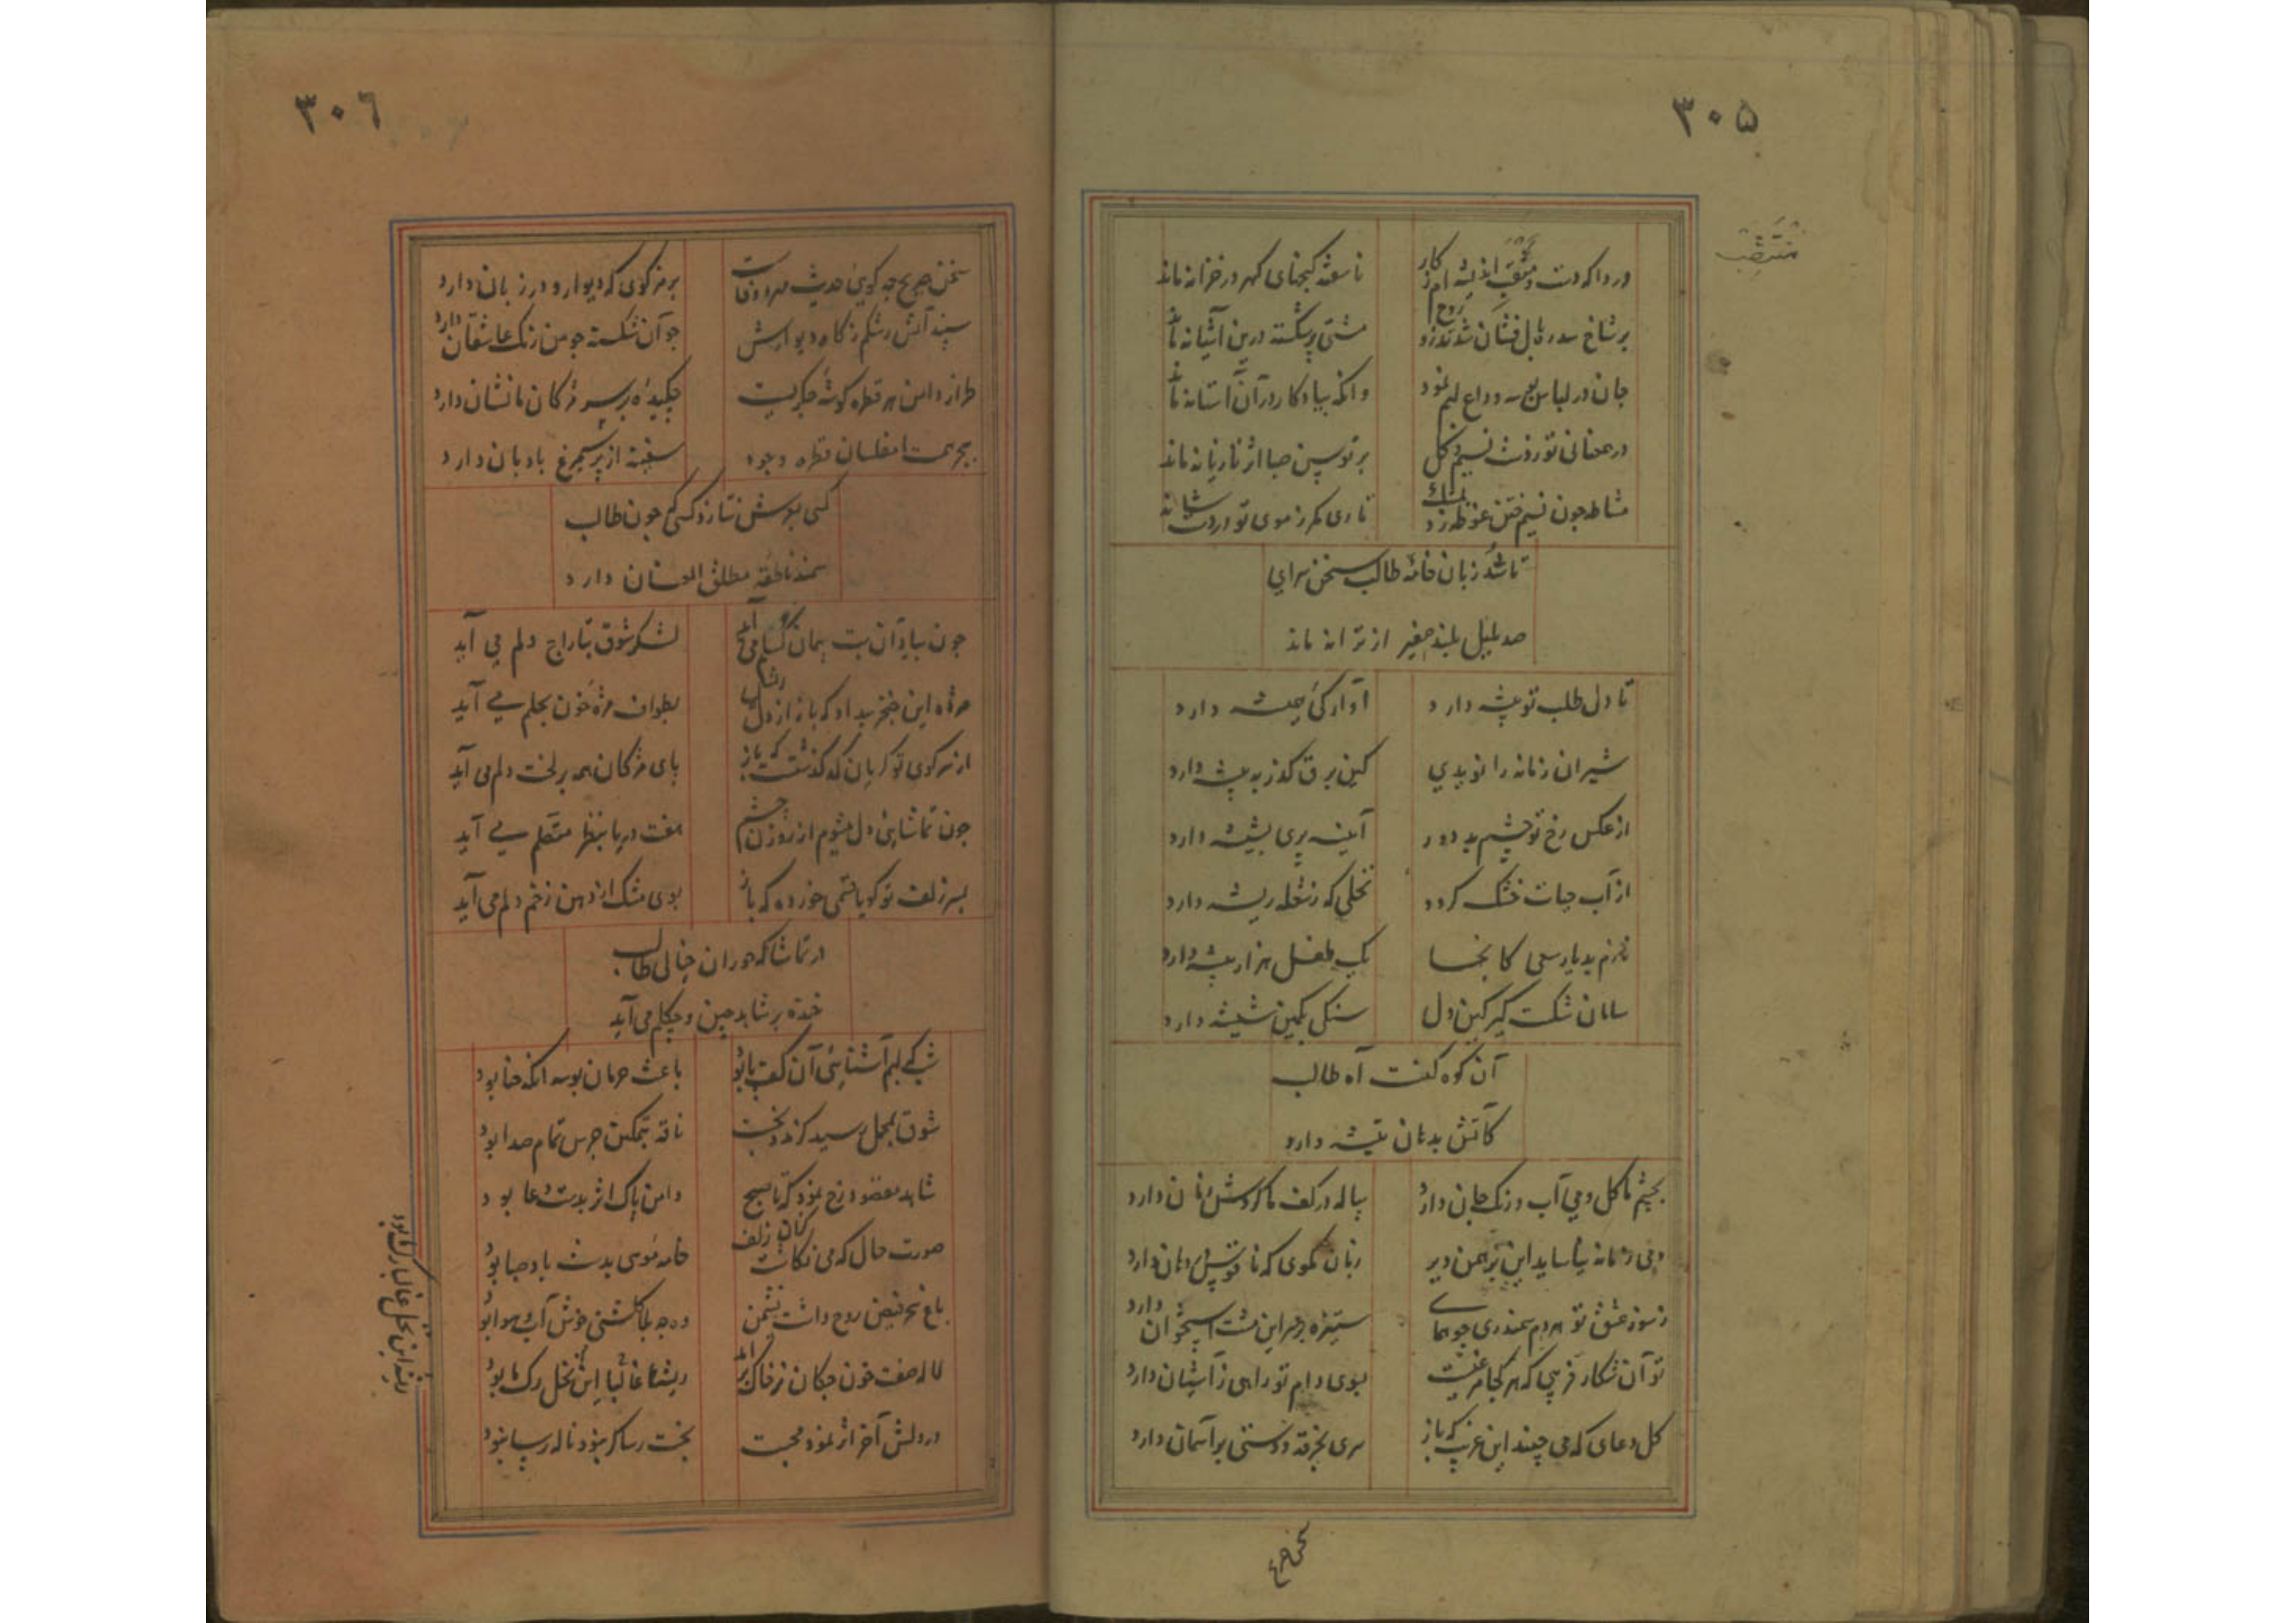 ۳۰۵
درداکه دست مثقب اندیشه ام ز کار
ناسفته کنجهای کهر در خزانه ماند
بر شاخ سدره بال فشان شد تذرو روح
مشتی پر شکسته درین آشیانه ماند
جان در لباس بوسه وداع لبم نمود
وانکه بیادکار در آن آستانه ماند
در همعنانی تو ز دوش نسیم کل
بر توسن صبا اثر تازیانه ماند
مشاطه چون نسیم ختن غوطه زد بمشک
تاری مکر ز موی تو در دست شانه ماند
تا شد زبان خامه طالب سخن سرای
صد بلبل بلند صفیر از ترانه ماند
تا دل طلب تو پیشه دارد
آوارکی همیشه دارد
شیران زمانه را نویدی
کین برق کذر به بیشه دارد
از عکس رخ تو چشم بد دور
آیینه پری بشیشه دارد
از آب حیات خشک کردد
نخلی که ز شعله ریشه دارد
نازم بدیار سعی کانجا
یک طفل هزار پیشه دارد
سامان شکست کیر کین دل
سنکی بکمین شیشه دارد
آن کوه کنست آه طالب
کاتش بدهان تیشه دارد
بچشم ما کل و می آب و رنک جان دارد
پیاله در کف ما کردش زمان دارد
دمی زمانه نیاساید این برهمن دیر
زبان نکوی که ناقوس در دهان دارد
ز سوز عشق تو هر دم سمندری چو همای
ستیزه بر سر این مشت استخوان دارد
تو آن شکار فریبی که هر کجا مرغیست
ببوی دام تو راهی ز آشیان دارد
کل دعای که می چیند این غریب که باز
سری بخرقه و دستی بر آسمان دارد
سخن صریح
۳۰۶
سخن صریح چه کویی حدیث مهر و وفاست
برمز کوی که دیوار و در زبان دارد
سپند آتش رشکم ز کاه دیوارش
چو آن شکسته چو من رنک عاشقان دارد
طراز دامن هر قطره کوشه جکریست
چکیده بر سر مژکان ما نشان دارد
ببحر همت ما مفلسان قطره وجود
سفینه از پر سیمرغ بادبان دارد
کسی بدوش نتازد کسی چون طالب
سمند ناطقه مطلق العنان دارد
چون بیاد آن بت پیمان کسلم می آید
لشکر شوق بتاراج دلم می آید
مژه این خنجر بیداد که باز از دل ریش
بطواف مژه خون بحلم می آید
از سر کوی تو کریان که کذشتست که باز
پای مژکان همه بر لخت دلم می آید
چون تماشایی دل میشوم از روزن چشم
هفت دریا بنظر متصلم می آید
بسر زلف تو کویا قسمی خورده که باز
بوی مشک از دهن زخم دلم می آید
در تماشاکه حوران خیالی طالب
خنده بر شاهد چین و چکلم می آید
شب که لبم آشنایی آن کف پا بود
باعث حرمان بوسه انکه حنا بود
شوق بمحمل رسید کرنه ز بخت
ناقه بتمکین جرس تمام صدا بود
شاهد مقصود رخ نمود که تا صبح
دامن پاک اثر بدست دعا بود
صورت حال که می نکاشت کان زلف
خامه موسی بدست باد صبا بود
باغ سحر فیض روح داشت نشیمن
وه چه بلا کلشنی خوش آب و هوا بود
لاله صفت خون چکان ز خاک بر آمد
ریشه ما غالبا این نخل رک ما بود
در دلش آخر اثر نمود محبت
بخت رسا کر نبود ناله رسا بود
ریشه این نخل غالبا رک ما بود